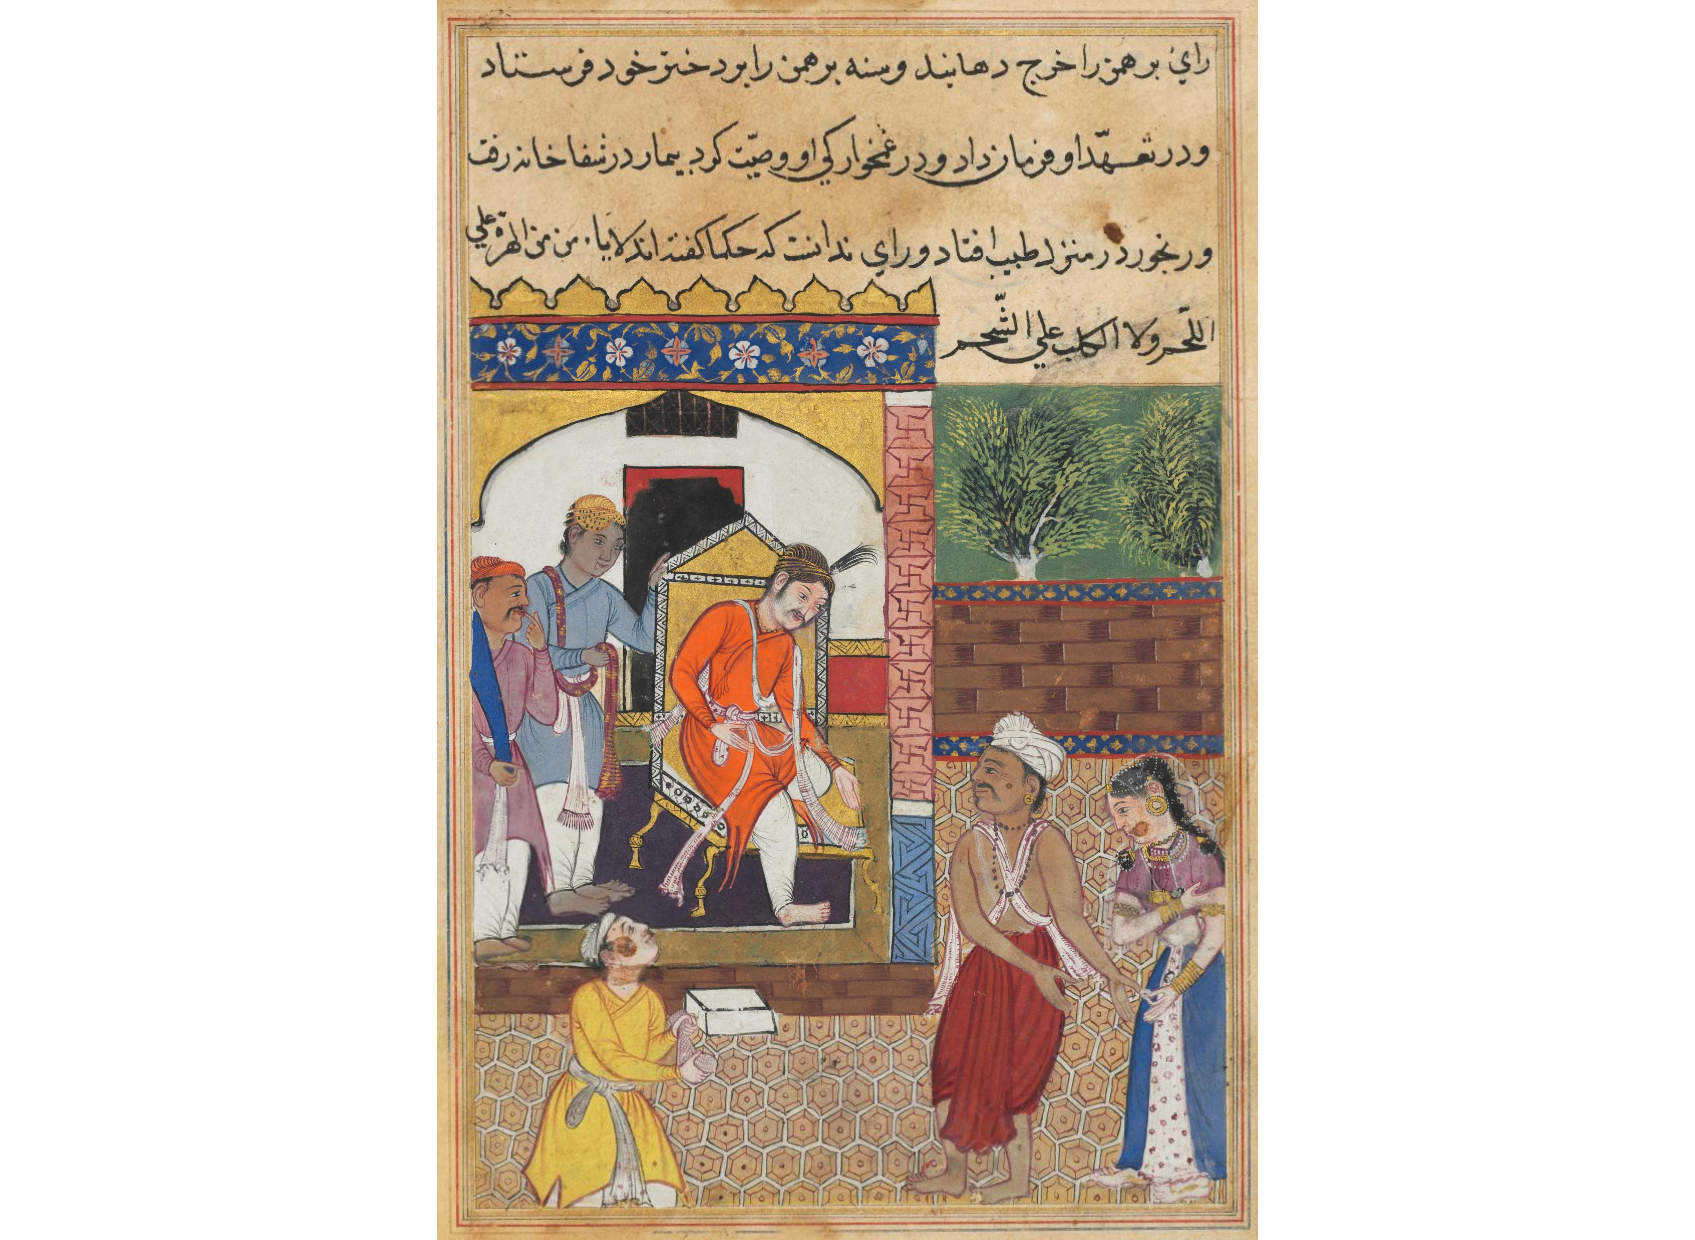 راي برهمن را خرج دهانید و سنه برهمن را بر دختر خود فرستاد
و در تعهّد او فرمان داد و در غمخوارکي او وصیّت کرد بیمار در شفا خانه رفت
و رنجور در منزل طبیب افتاد و راي ندانست که حکما کفته اند لا یا من من الهرة علي
اللّحم و لا الکلب علي الشّحم